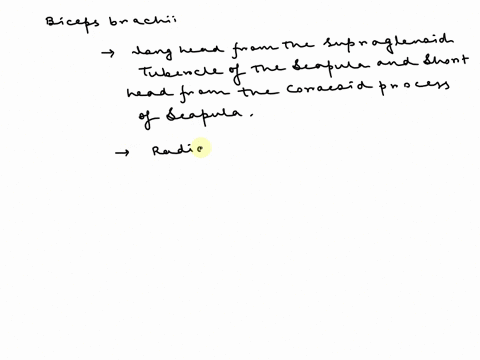 Biceps brachii
→ Long head from the supraglenoid
Tubercle of the Scapula and Short
head from the Coracoid process
of Scapula.
→ Radio